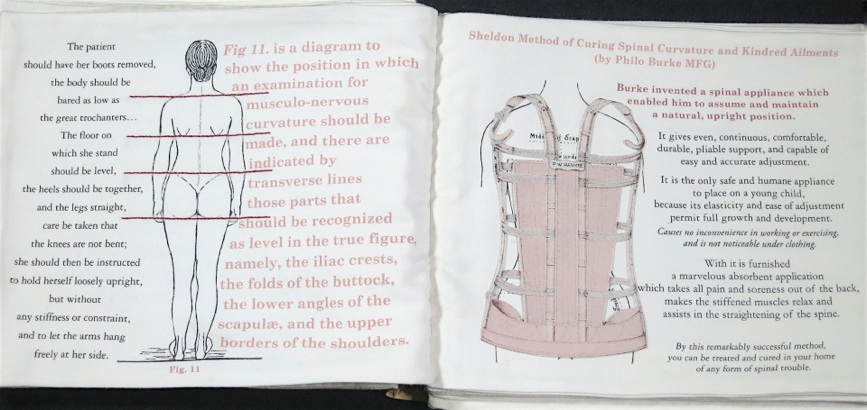 The patient
should have her boots removed,
the body should be
bared as low as
the great trochanters...
The floor on
which she stand
should be level,
the heels should be together,
and the legs straight,
care be taken that
the knees are not bent;
she should then be instructed
to hold herself loosely upright,
but without
any stiffness or constraint,
and to let the arms hang
freely at her side.
Fig 11. is a diagram to
show the position in which
an examination for
musculo-nervous
curvature should be
made, and there are
indicated by
transverse lines
those parts that
should be recognized
as level in the true figure,
namely, the iliac crests,
the folds of the buttock,
the lower angles of the
scapulæ, and the upper
borders of the shoulders.
Fig. 11
Sheldon Method of Curing Spinal Curvature and Kindred Ailments
(by Philo Burke MFG)
Burke invented a spinal appliance which
enabled him to assume and maintain
a natural, upright position.
It gives even, continuous, comfortable,
durable, pliable support, and capable of
easy and accurate adjustment.
It is the only safe and humane appliance
to place on a young child,
because its elasticity and ease of adjustment
permit full growth and development.
Causes no inconvenience in working or exercising,
and is not noticeable under clothing.
With it is furnished
a marvelous absorbent application
which takes all pain and soreness out of the back,
makes the stiffened muscles relax and
assists in the straightening of the spine.
By this remarkably successful method,
you can be treated and cured in your home
of any form of spinal trouble.